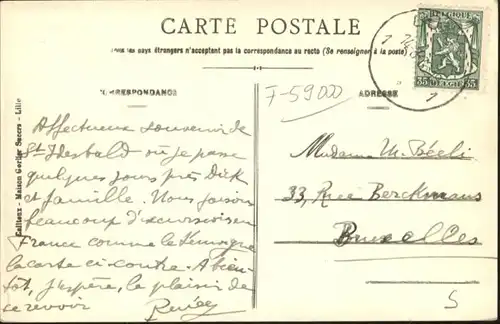 CARTE POSTALE
Tous les pays étrangers n'acceptent pas la correspondance au recto (Se renseigner à la poste)
CORRESPONDANCE
F-59000
ADRESSE
BELGIQUE
35 BELGIE 35
Cailteux - Maison Gorlier Succrs - Lille
Affectueux souvenir de
St Idesbald où je passe
quelques jours près Dick
et famille. Nous faisons
beaucoup d'excursions en
France comme le témoigne
la carte ci-contre. A bien-
tôt, j'espère, le plaisir de
se revoir
Madame M.
33, Rue Berckmans
Bruxelles
5